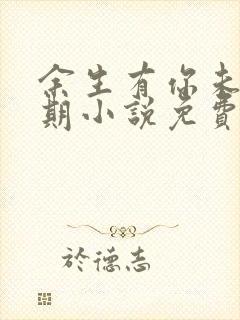 余生有你未
期小説免費
於德志